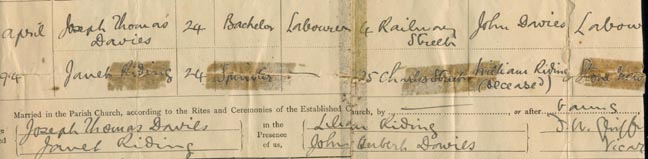 April Joseph Thomas 24 Bachelor Labourer 4 Railway John Davies Labour
Davies Street
94 Janet Riding 24 Spinster 25 Charles Street William Riding Stone
(deceased)
Married in the Parish Church, according to the Rites and Ceremonies of the Established Church, by or after Banns
Joseph Thomas Davies in the Lilian Riding
Janet Riding Presence of us, John Davies Vicar